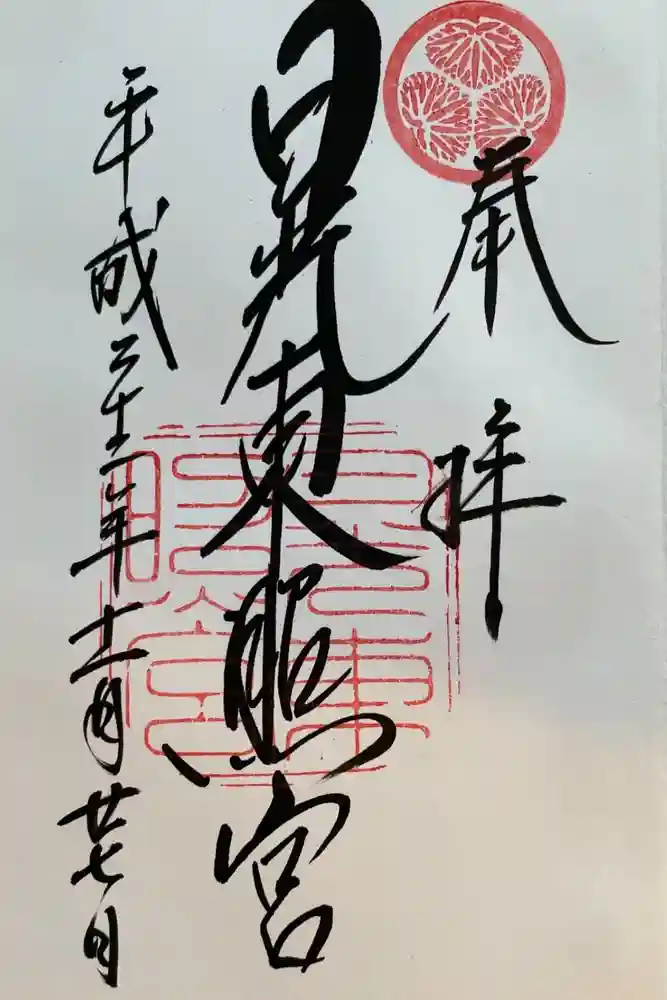 奉拝
日光東照宮
平成二十二年十一月廿七日